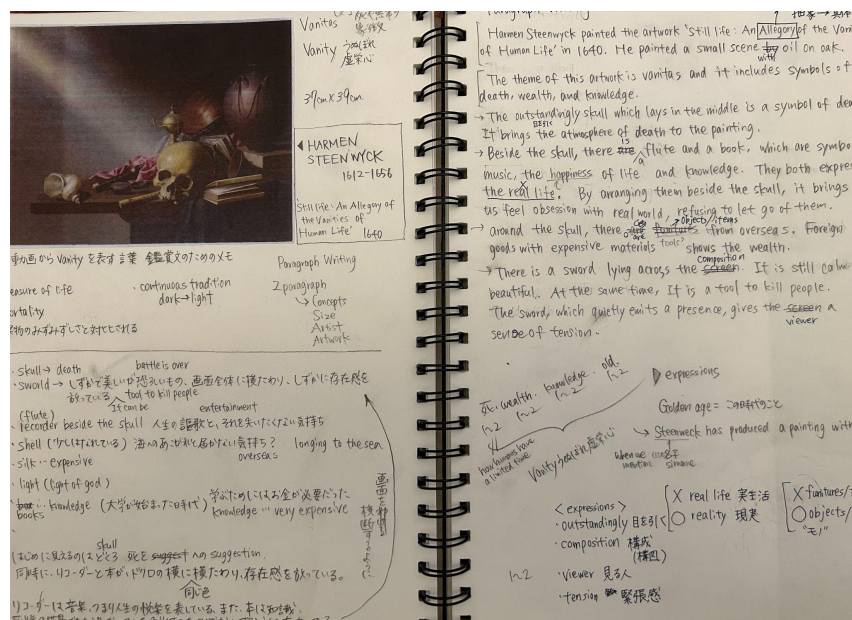 Vanitas
Vanity うぬぼれ
虚栄心
39cm×39cm
◀HARMEN
STEENWYCK
1612-1656
Still life: An Allegory of
the Vanities of
Human Life' 1640
動画からVanityを表す言葉 鑑賞文のためのメモ
easure of life
ortality
・continuous tradition
dark→light
Paragraph Writing
2paragraph
→Concepts
Size
Artist
Artwork
・skull → death
battle is over
・sword → しずかで美しいが恐ろしいもの、画面全体に横たわり、しずかに存在感を
放っている tool to kill people
It can be
(flute) entertainment
・recorder beside the skull 人生の謳歌と、それを失いたくない気持ち
・shell (少しはなれている) 海へのあこがれと届かない気持ち? longing to the sea
overseas
・silk … expensive
・light (light of god)
books … knowledge (大学が始まった時代) 学ぶためにはお金が必要だった
knowledge … very expensive
skull
はじめに見えるのはどくろ 死を suggest への suggestion.
同時に、リコーダーと本が、ドクロの横に横たわり、存在感を放っている。
同じ色
リコーダーは音楽、つまり人生の悦楽を表している。また、本は知識、
Harmen Steenwyck painted the artwork 'Still life: An Allegory of the Vani
of Human Life' in 1640. He painted a small scene by oil on oak.
with
The theme of this artwork is vanitas and it includes symbols of
death, wealth, and knowledge.
→ The outstandingly skull which lays in the middle is a symbol of dea
目を引く
It brings the atmosphere of death to the painting.
is
→ Beside the skull, there are a flute and a book, which are symbo
music, the happiness of life and knowledge. They both expre
the real life. By arranging them beside the skull, it brings
us feel obsession with real world, refusing to let go of them.
→objects/items
→ around the skull, there are funitures from overseas. Foreign
goods with expensive materials tools? shows the wealth.
composition
→ There is a sword lying across the screen. It is still calm
beautiful. At the same time, It is a tool to kill people.
The sword, which quietly emits a presence, gives the screen a
viewer
sense of tension.
死・wealth・knowledge・old.
1~2 1~2 1~2 1~2
how humans have
a limited time
Vanity うぬぼれ 虚栄心
▷expressions
Golden age = この時代のこと
→ Steenweck has produced a painting with
when we
mention
<expressions>
・outstandingly 目を引く
・composition 構成
(構図)
1~2 ・viewer 見る人
・tension 緊張感
X real life 実生活
○ reality 現実
X funitures/
○ objects/
"モノ"